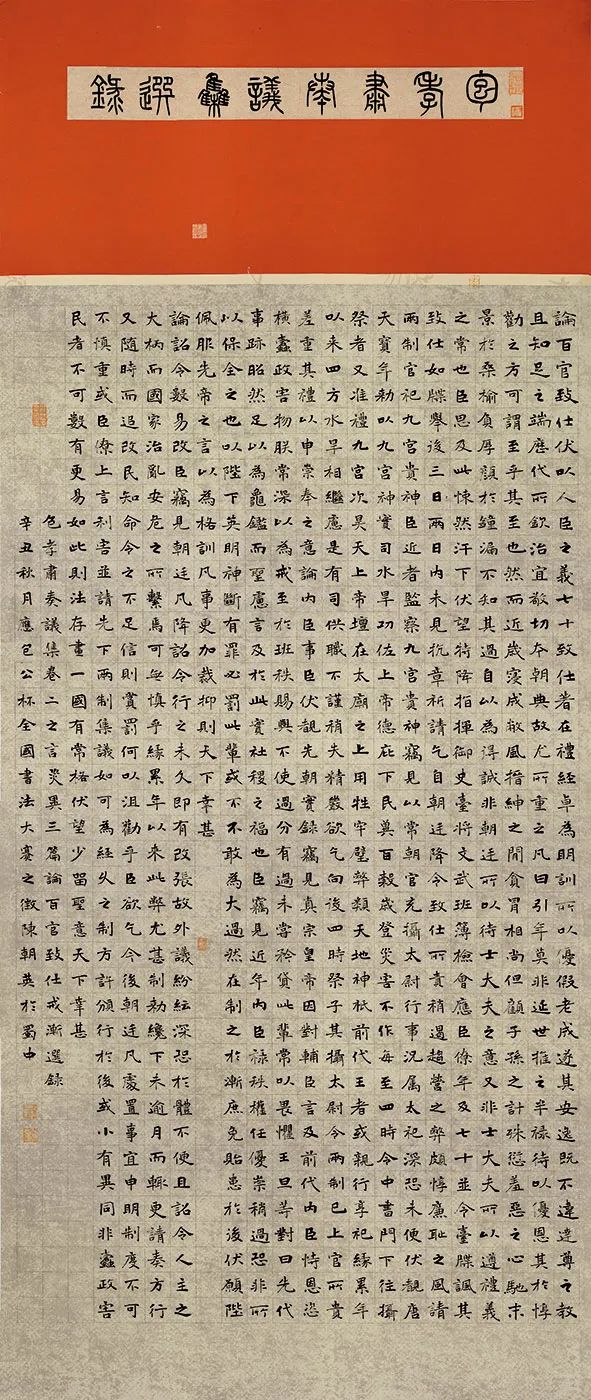 包孝肅奏議集選錄
論百官致仕伏以人臣之義七十致仕著在禮經卓為明訓所以優假老成遂其安逸既不違達尊之教
且知足之端應代所欽治宜敦切本朝典故尤所重之凡曰引年莫非延世推之半祿待以優恩其於惇
勸之方可謂至乎其至也然而近歲寖成敝風搢紳之間貪冒相尚但顧子孫之計殊愆羞惡之心馳末
景於桑榆負厚顏於鐘漏不知其過自以為得誠非朝廷所以待士大夫之意又非士大夫所以遵禮義
之常也臣思及此悚然汗下伏望特降指揮御史臺將文武班簿檢會應臣僚年及七十並令臺牒諷其
致仕如牒舉後三日兩日內未見抗章祈請乞自朝廷降令致仕所貴稍遏趨營之弊頗惇廉恥之風請
兩制官祀九宮貴神臣近者監察九宮貴神竊見以常朝官充攝太尉行事況属太祀深恐未便伏覩唐
天寶年勑以九宮神實司水旱功佐上帝德庇下民冀百穀歲登災害不作每至四時令中書門下往攝
祭者又准禮九宮次昊天上帝壇在太廟之上用牲牢璧幣類天地神祇前代王者或親行享祀緣累年
以來四方水旱相繼慮是有司供職不謹稍失精嚴欲乞向後四時祭子其攝太尉令兩制已上官所貴
差重其禮以申崇奉之意論內臣事臣伏覩先朝實録竊見真宗皇帝因對輔臣言及前代內臣恃恩恣
橫蠹政害物朕常深以為戒至於班秩賜與不使過分有過未嘗矜貸此輩常以畏懼王旦等對曰先代
事跡昭然足以為龜鑑而聖慮言及於此實社稷之福也臣竊見近年內臣祿秩權任優崇稍過恐非所
以保全之也以陛下英明神斷有罪必罰此輩或不不敢為大過然在制之於漸庶免貽患於後伏願陛
佩服先帝之言以為格訓凡事更加裁抑則天下幸甚
論詔令數易改臣竊見朝廷凡降詔令行之未久即有改張故外議紛紜深恐於體不便且詔令人主之
大柄而國家治亂安危之所繫焉可無慎乎緣累年以來此弊尤甚制勑纔下未逾月而輒更請奏方行
又隨時而追改民知命令之不足信則賞罰何以沮勸乎臣欲乞今後朝廷凡處置事宜申明制度不可
不慎重或臣僚上言利害並請先下兩制集議如可為經久之制方許頒行於後或小有異同非蠹政害
民者不可數有更易如此則法存畫一國有常格伏望少留聖意天下幸甚
包孝肅奏議集卷二之言災異三篇論百官致仕戒漸選録
辛丑秋月應包公杯全國書法大賽之徵陳朝英於蜀中